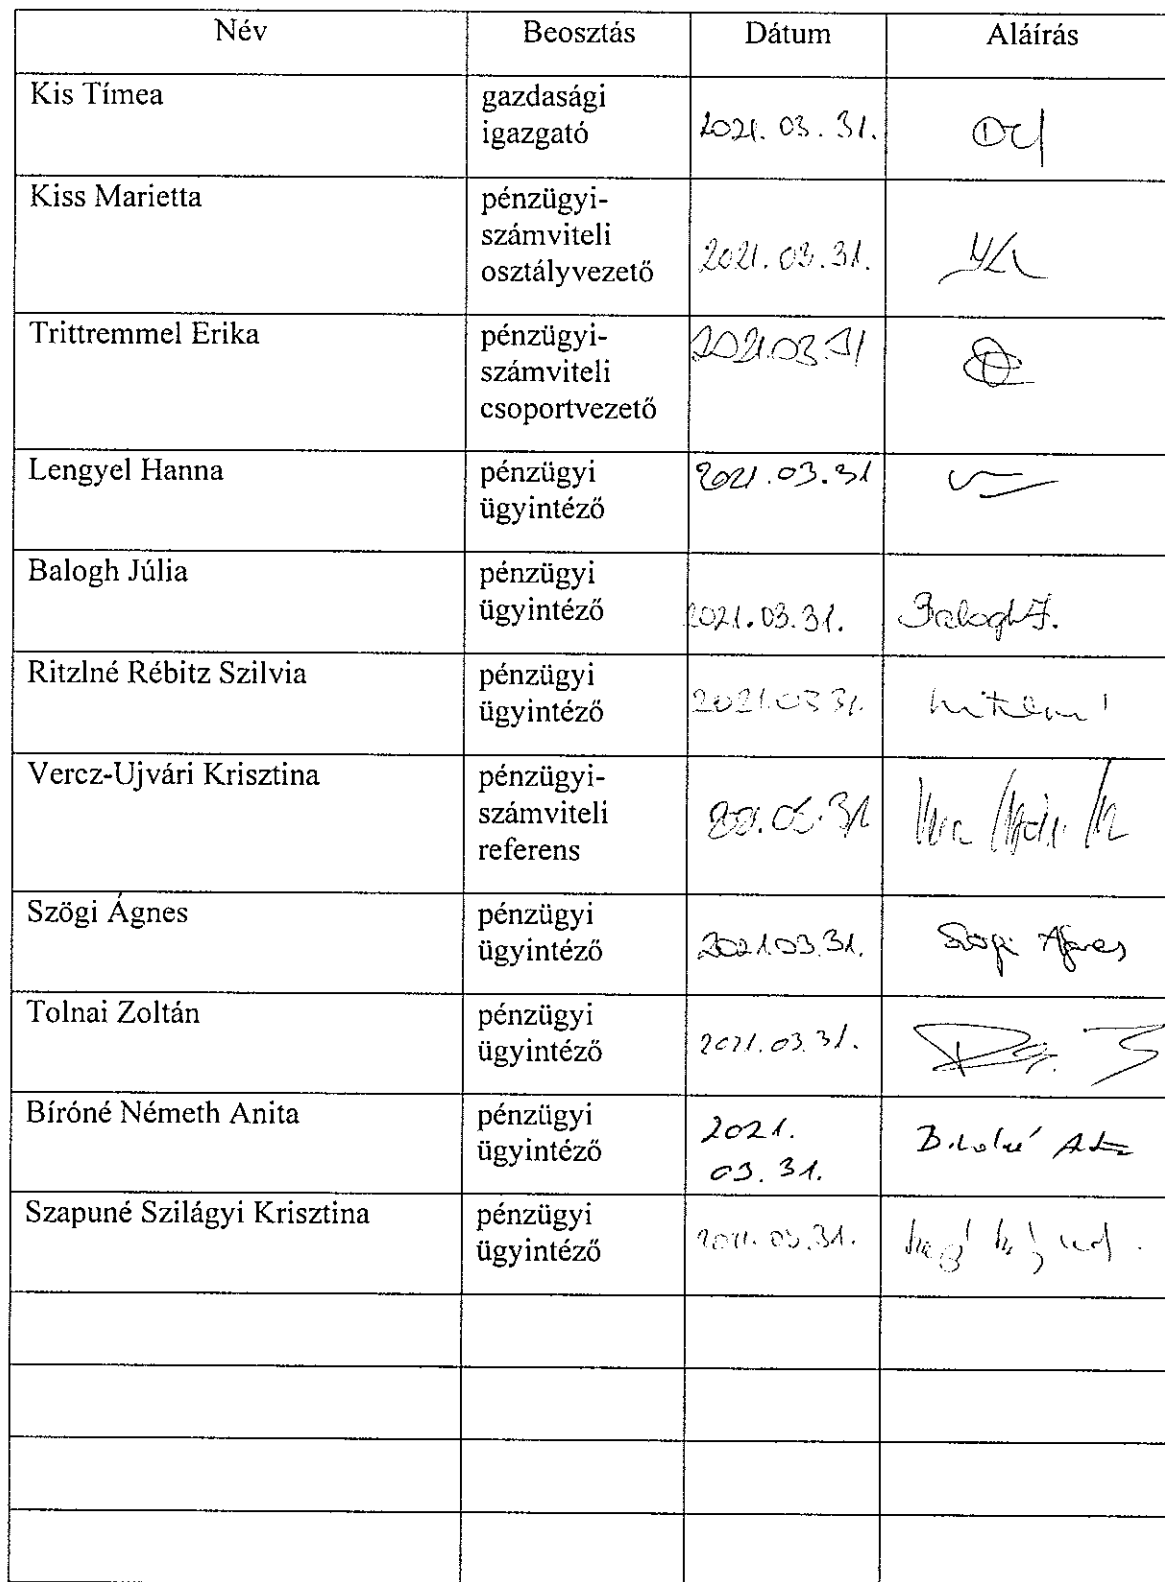 Név Beosztás Dátum Aláírás
Kis Tímea gazdasági
igazgató 2021. 03. 31.
Kiss Marietta pénzügyi-
számviteli
osztályvezető 2021. 03. 31.
Trittremmel Erika pénzügyi-
számviteli
csoportvezető 2021.03 31
Lengyel Hanna pénzügyi
ügyintéző 2021.03.31
Balogh Júlia pénzügyi
ügyintéző 2021.03.31. Balogh J.
Ritzlné Rébitz Szilvia pénzügyi
ügyintéző 2021.03 31.
Vercz-Ujvári Krisztina pénzügyi-
számviteli
referens
Szögi Ágnes pénzügyi
ügyintéző 2021.03.31. Szögi Ágnes
Tolnai Zoltán pénzügyi
ügyintéző 2021.03.31.
Bíróné Németh Anita pénzügyi
ügyintéző 2021.
03.31.
Szapuné Szilágyi Krisztina pénzügyi
ügyintéző 2021.03.31.